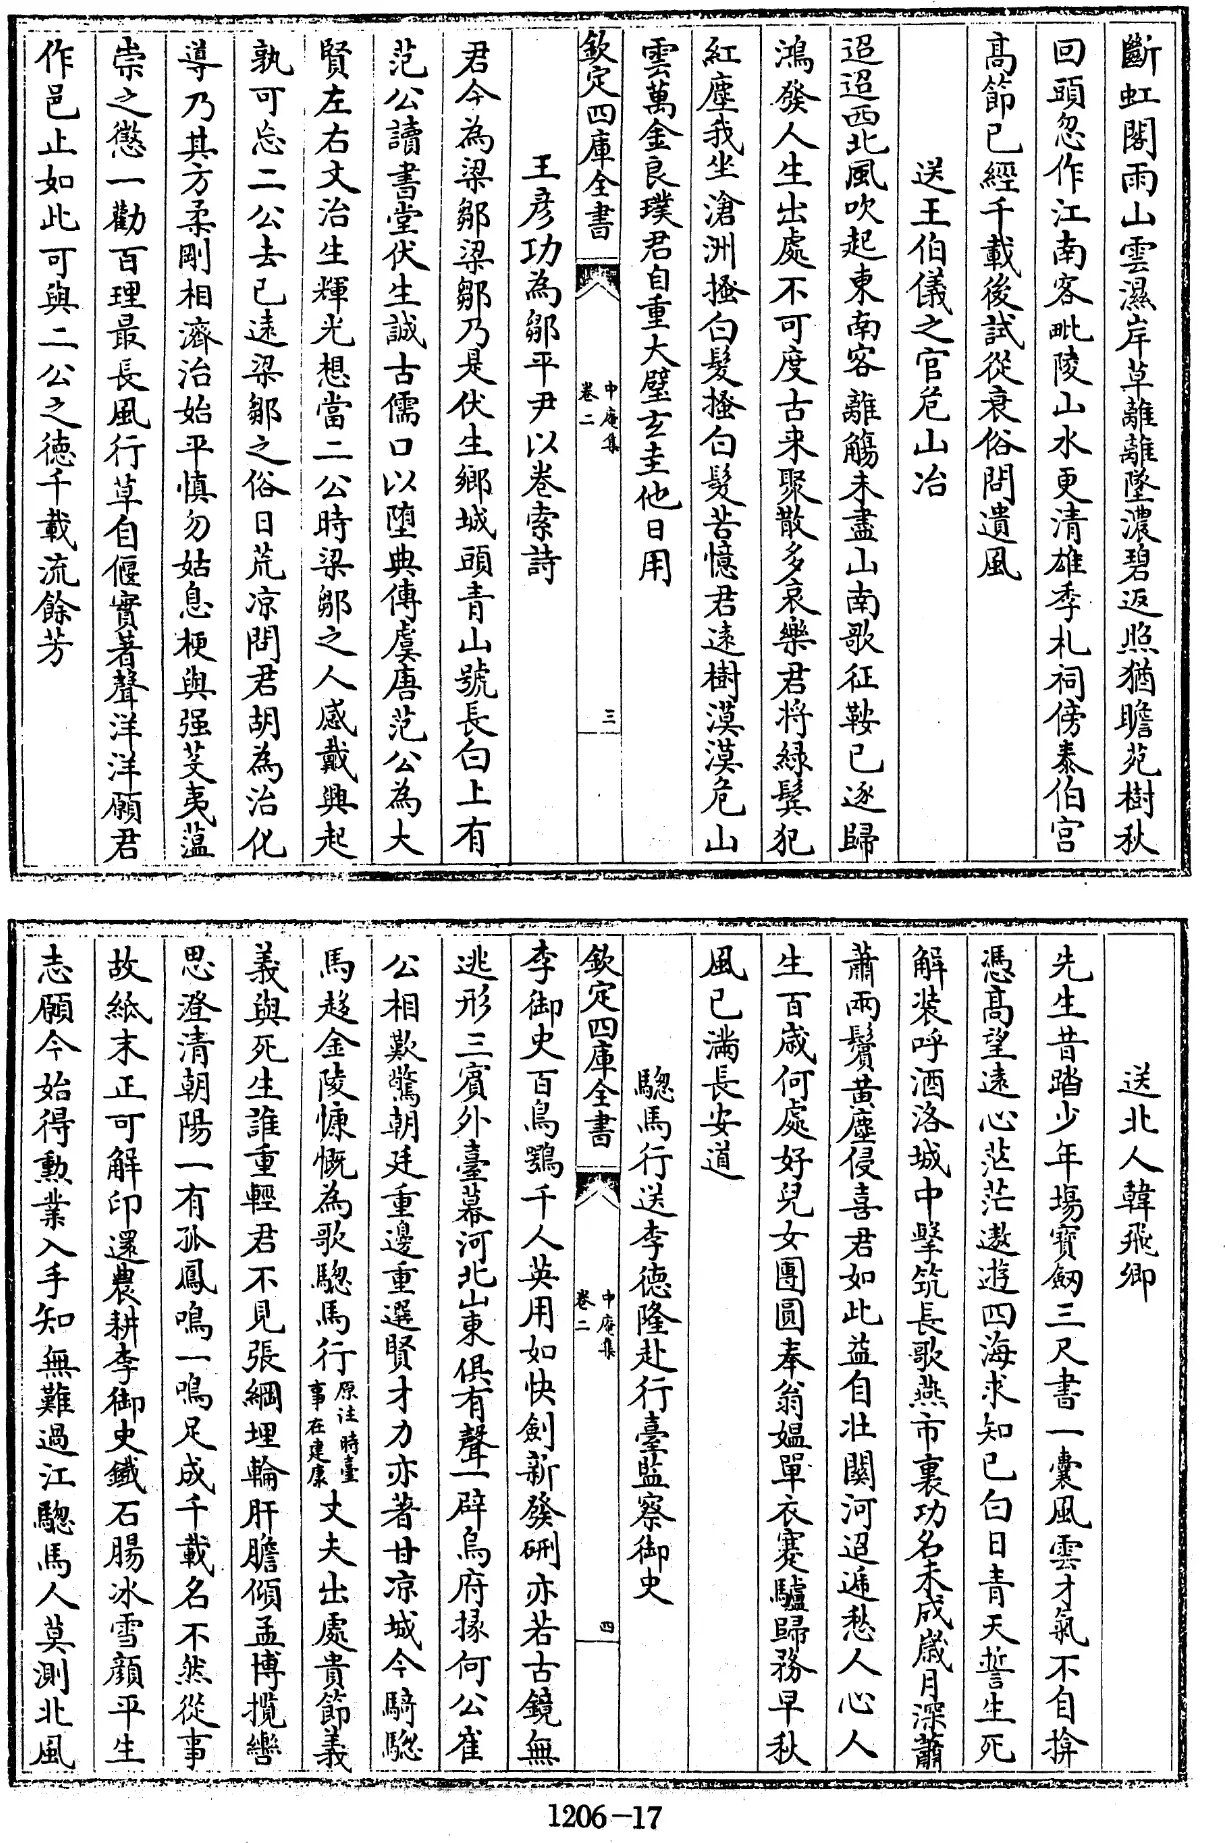 斷虹閣雨山雲濕岸草離離墜濃碧返照猶瞻苑樹秋
回頭忽作江南客毗陵山水更清雄季札祠傍泰伯宫
髙節已經千載後試從衰俗問遺風
送王伯儀之官危山冶
迢迢西北風吹起東南客離觴未盡山南歌征鞍已逐歸
鴻發人生出處不可度古来聚散多哀樂君將緑鬂犯
紅塵我坐滄洲搔白髮搔白髮苦憶君逺樹漠漠危山
雲萬金良璞君自重大璧玄圭他日用
欽定四庫全書
中庵集
卷二
三
王彦功為鄒平尹以卷索詩
君今為梁鄒梁鄒乃是伏生鄉城頭青山號長白上有
范公讀書堂伏生誠古儒口以堕典傳虞唐范公為大
賢左右文治生輝光想當二公時梁鄒之人感戴興起
孰可忘二公去已逺梁鄒之俗日荒凉問君胡為治化
導乃其方柔剛相濟治始平慎勿姑息梗與强芟夷藴
崇之懲一勸百理最長風行草自偃實著聲洋洋願君
作邑止如此可與二公之徳千載流餘芳
送北人韓飛卿
先生昔踏少年場寳劒三尺書一囊風雲才氣不自揜
憑髙望逺心茫茫遨遊四海求知已白日青天誓生死
解装呼酒洛城中擊筑長歌燕市裏功名未成嵗月深蕭
蕭兩鬢黄塵侵喜君如此益自壮闗河迢逓愁人心人
生百歲何處好兒女團圓奉翁媪單衣蹇驢歸務早秋
風已滿長安道
驄馬行送李德隆赴行臺監察御史
欽定四庫全書
中庵集
卷二
四
李御史百鳥鶚千人英用如快劍新發硎亦若古鏡無
逃形三賓外臺幕河北山東俱有聲一辟烏府掾何公崔
公相歎驚朝廷重邊重選賢才力亦著甘凉城今騎驄
馬趍金陵慷慨為歌驄馬行原注時臺事在建康丈夫出處貴節義
義與死生誰重輕君不見張綱埋輪肝膽傾孟博攬轡
思澄清朝陽一有孤鳳鳴一鳴足成千載名不然從事
故紙末正可解印還農耕李御史鐵石腸冰雪顔平生
志願今始得勲業入手知無難過江驄馬人莫測北風
1206-17